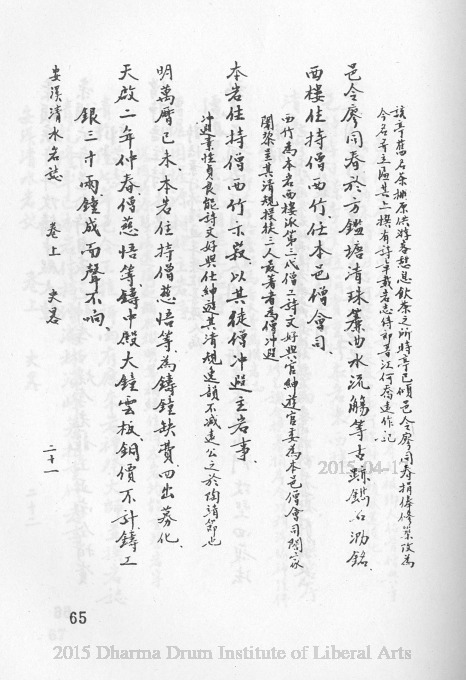 該亭舊名茶擔原供游者憩息飲茶之所時亭已傾邑令廖同春捐俸修築改為
今名并立匾其上撰有詩章載若志侍郎晉江何喬遠作記
邑令廖同春於方鑑塘清珠簾曲水流觴等古跡鐫石勒銘
西樓住持僧西竹任本邑僧會司
西竹為本岩西樓派第三代僧工詩文好與官紳遊官委為本邑僧會司闔家
闍黎呈其清規授扶三人最著者為僧冲遐
本岩住持僧西竹示寂以其徒僧冲遐主岩事
冲遐素性貞良能詩文好與仕紳遊其清規遠韻不減遠公之於陶靖節也
明萬曆己未本岩住持僧慈悟等為鑄鐘缺費四出募化
天啟二年仲春僧慈悟等鑄中殿大鐘雲板銅價不計鑄工
銀三十兩鐘成而聲不响
安溪清水岩誌 卷上 史畧 二十一
65
2015-04-1
2015 Dharma Drum Institute of Liberal Arts